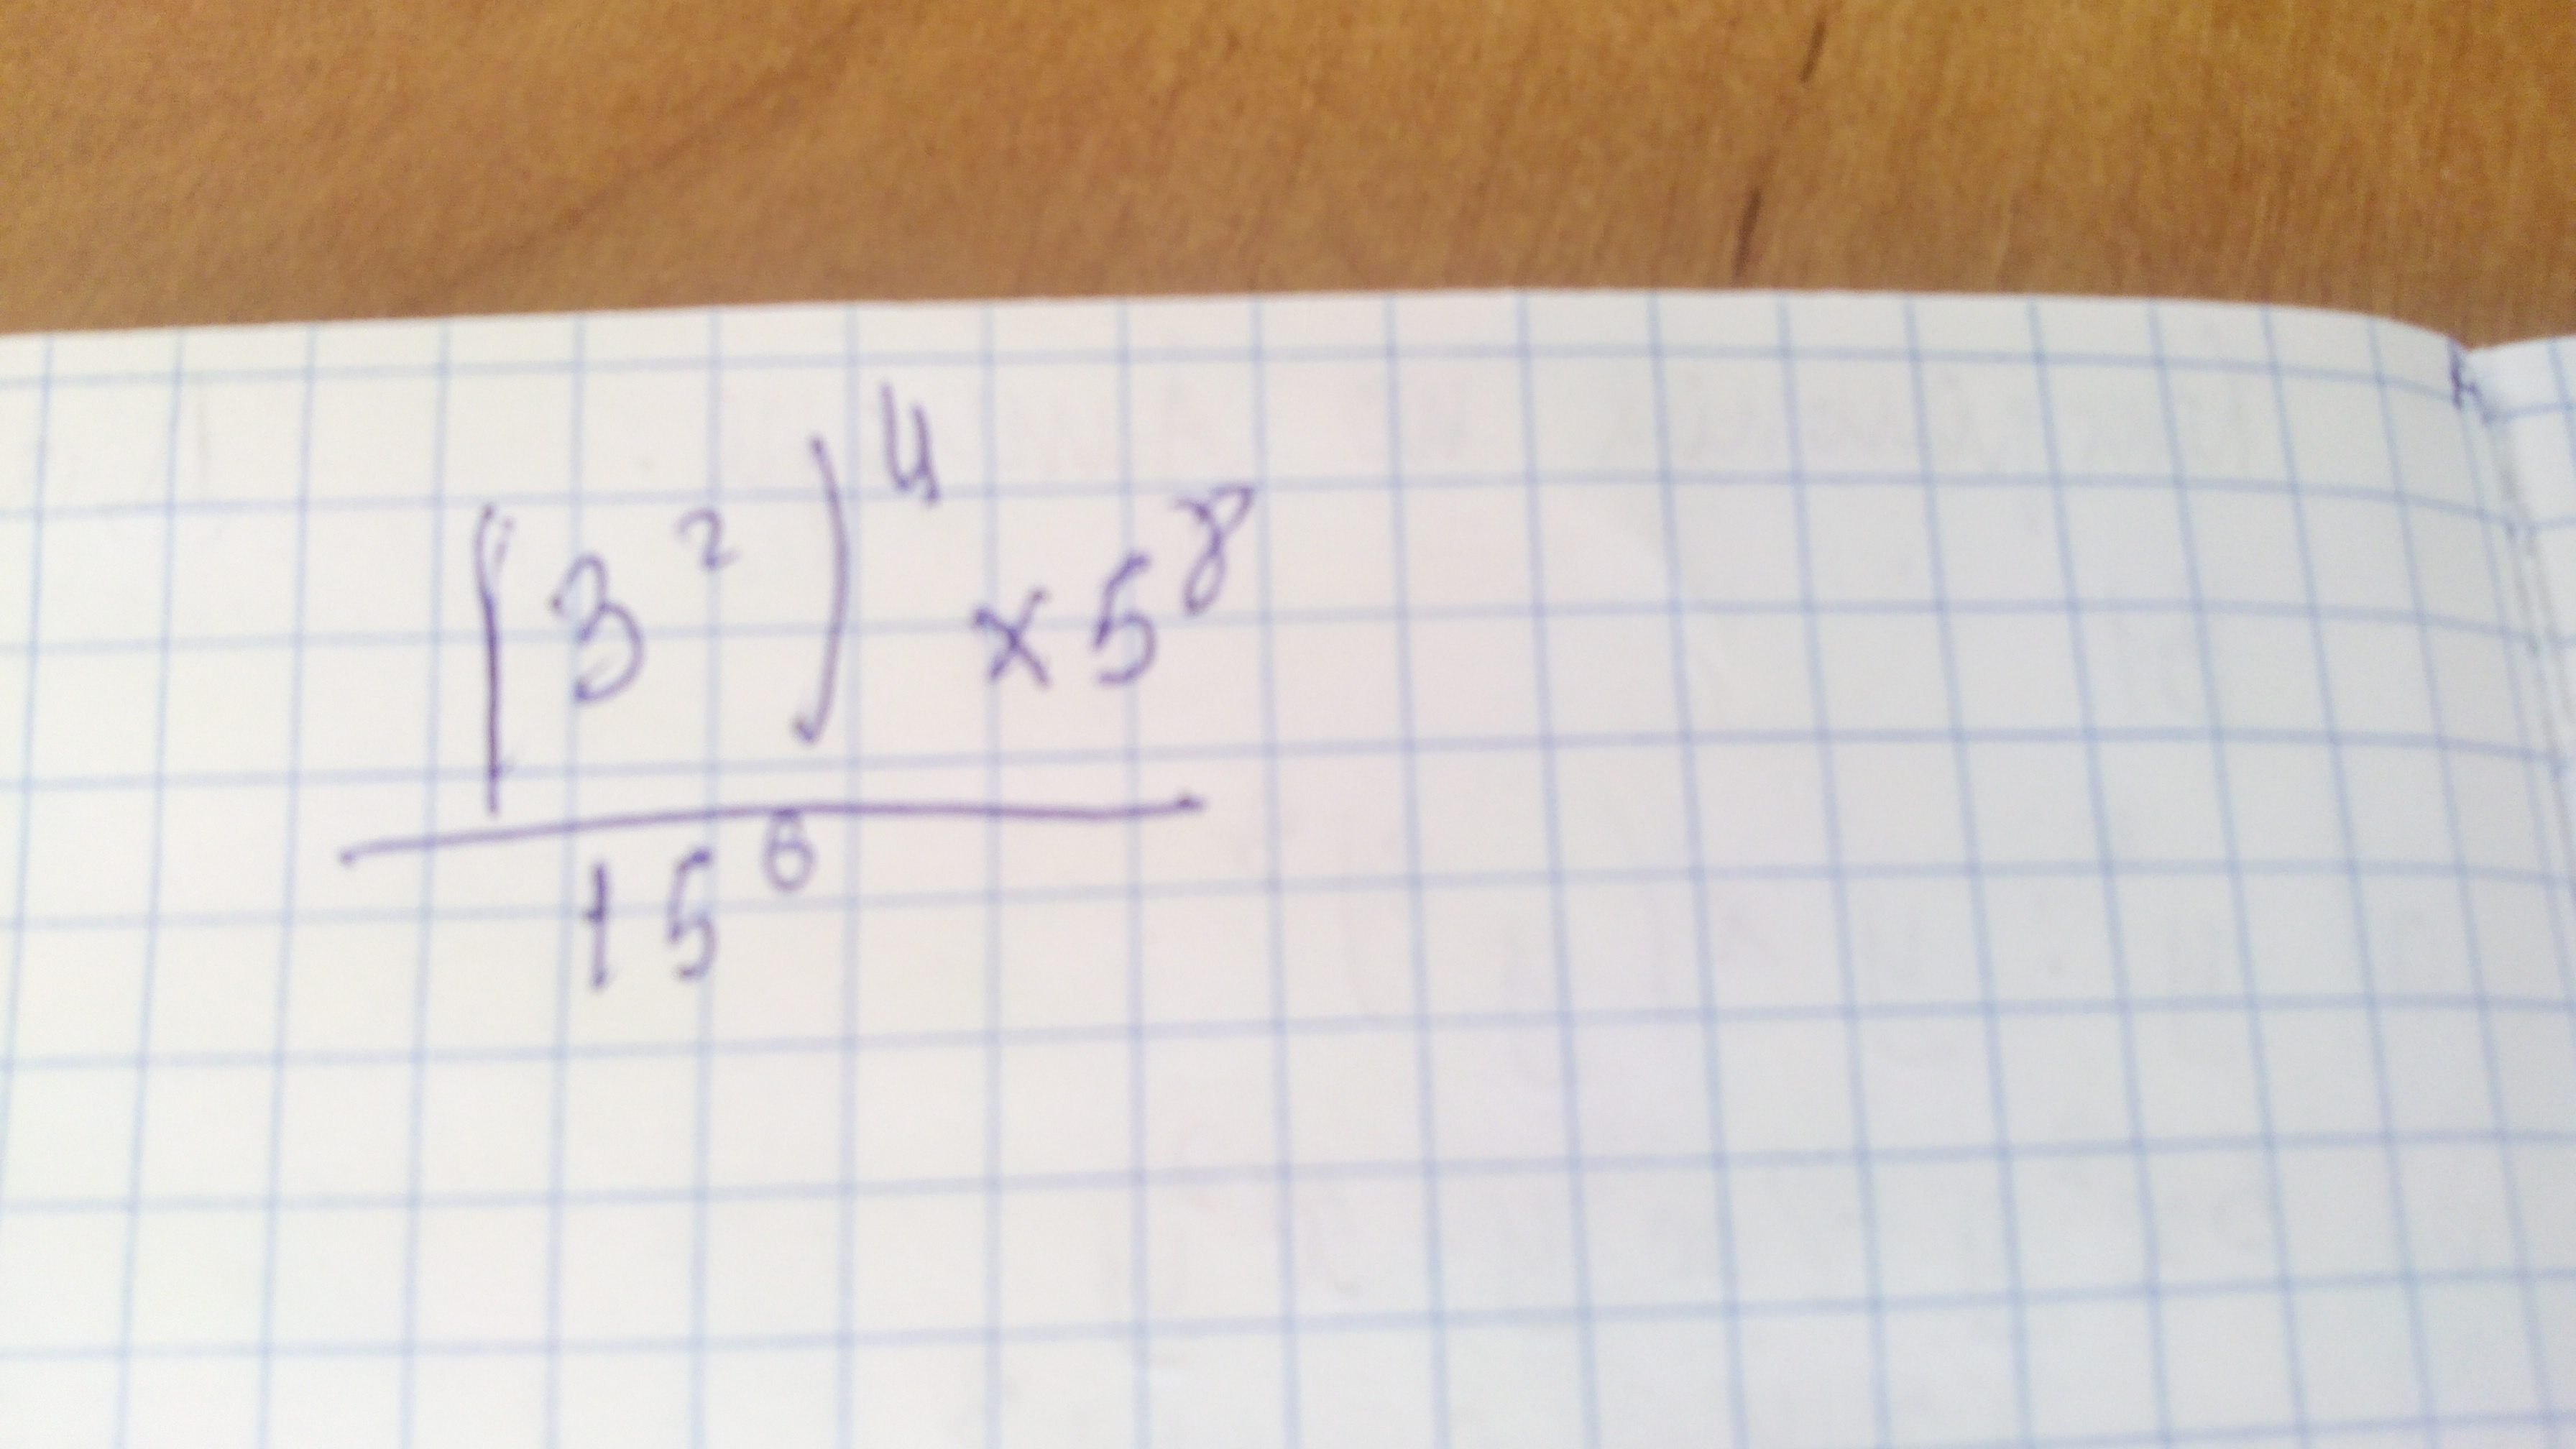 (3²)⁴ × 5⁸
15⁶